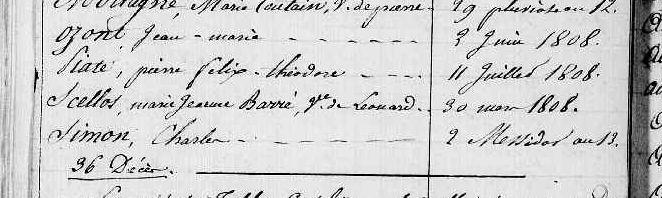 Marie Coulain, V. de pierre 29 pluviose an 12.
ozont, Jean-marie - - - - - - 2 Juin 1808.
Piaté, pierre felix-théodore - - - - 11 Juillet 1808.
Scellos, marie Jeanne Barrié, Ve de Leonard - 30 mars 1808.
Simon, Charles - - - - - - - 2 Messidor an 13.
36 Décès.